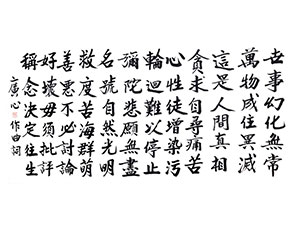 世事幻化無常
萬物成住異滅
這是人間真相
貪求自尋痛苦
心性徒增染污
輪迴難以停止
彌陀悲願無盡
名號自然光明
救度苦海群萌
善惡不必討論
好壞毋須批評
稱念決定往生
廣心 作曲詞